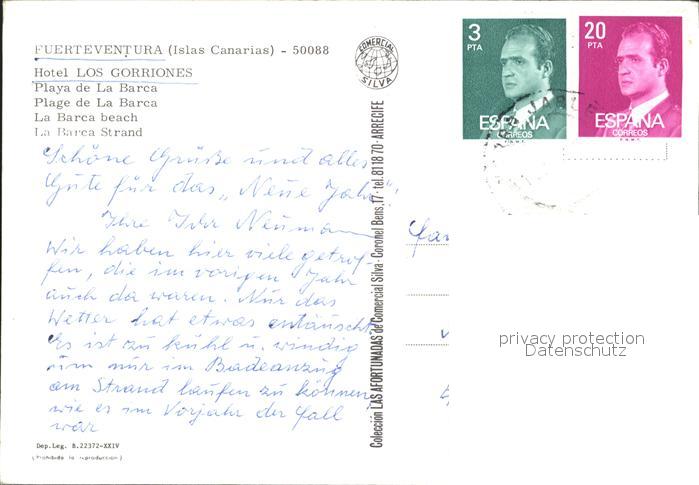 FUERTEVENTURA (Islas Canarias) - 50088
Hotel LOS GORRIONES
Playa de La Barca
Plage de La Barca
La Barca beach
La Barca Strand
Schöne Grüße und alles
Gute für das „Neue Jahr"
Ihre Ihr Neumann
Wir haben hier viele getrof-
fen, die im vorigen Jahr
auch da waren. Nur das
Wetter hat etwas entäuscht
Es ist zu kühl u. windig
um nur im Badeanzug
am Strand laufen zu können
wie es im Vorjahr der Fall
war
Dep. Leg. B. 22372-XXIV
(Prohibida la reproducción)
COMERCIAL
SILVA
Colección LAS AFORTUNADAS de Comercial Silva - Coronel Bens, 17 - tel. 81 18 70 - ARRECIFE
3
PTA
ESPAÑA
CORREOS
F.N.M.T.
20
PTA
ESPAÑA
CORREOS
F.N.M.T.
privacy protection
Datenschutz